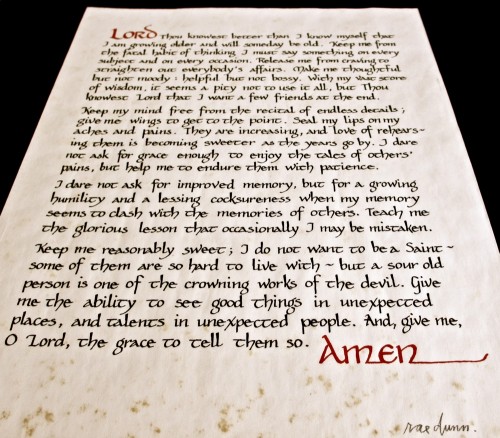 LORD Thou knowest better than I know myself that
I am growing older and will someday be old. Keep me from
the fatal habit of thinking I must say something on every
subject and on every occasion. Release me from craving to
straighten out everybody's affairs. Make me thoughtful
but not moody: helpful but not bossy. With my vast store
of wisdom, it seems a pity not to use it all, but Thou
knowest Lord that I want a few friends at the end.
Keep my mind free from the recital of endless details;
give me wings to get to the point. Seal my lips on my
aches and pains. They are increasing, and love of rehears-
ing them is becoming sweeter as the years go by. I dare
not ask for grace enough to enjoy the tales of others'
pains, but help me to endure them with patience.
I dare not ask for improved memory, but for a growing
humility and a lessing cocksureness when my memory
seems to clash with the memories of others. Teach me
the glorious lesson that occasionally I may be mistaken.
Keep me reasonably sweet; I do not want to be a Saint ~
some of them are so hard to live with ~ but a sour old
person is one of the crowning works of the devil. Give
me the ability to see good things in unexpected
places, and talents in unexpected people. And, give me,
O Lord, the grace to tell them so. AMEN
rae dunn.